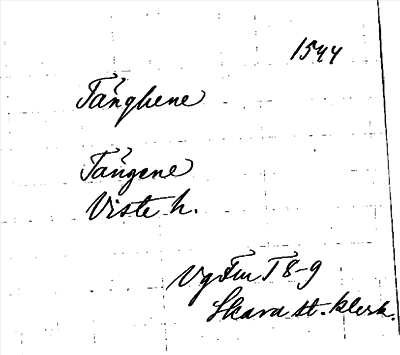 1544
Tånghene
Tångene
Viste h.
VgFmT 8-9
Skara st. klerk.